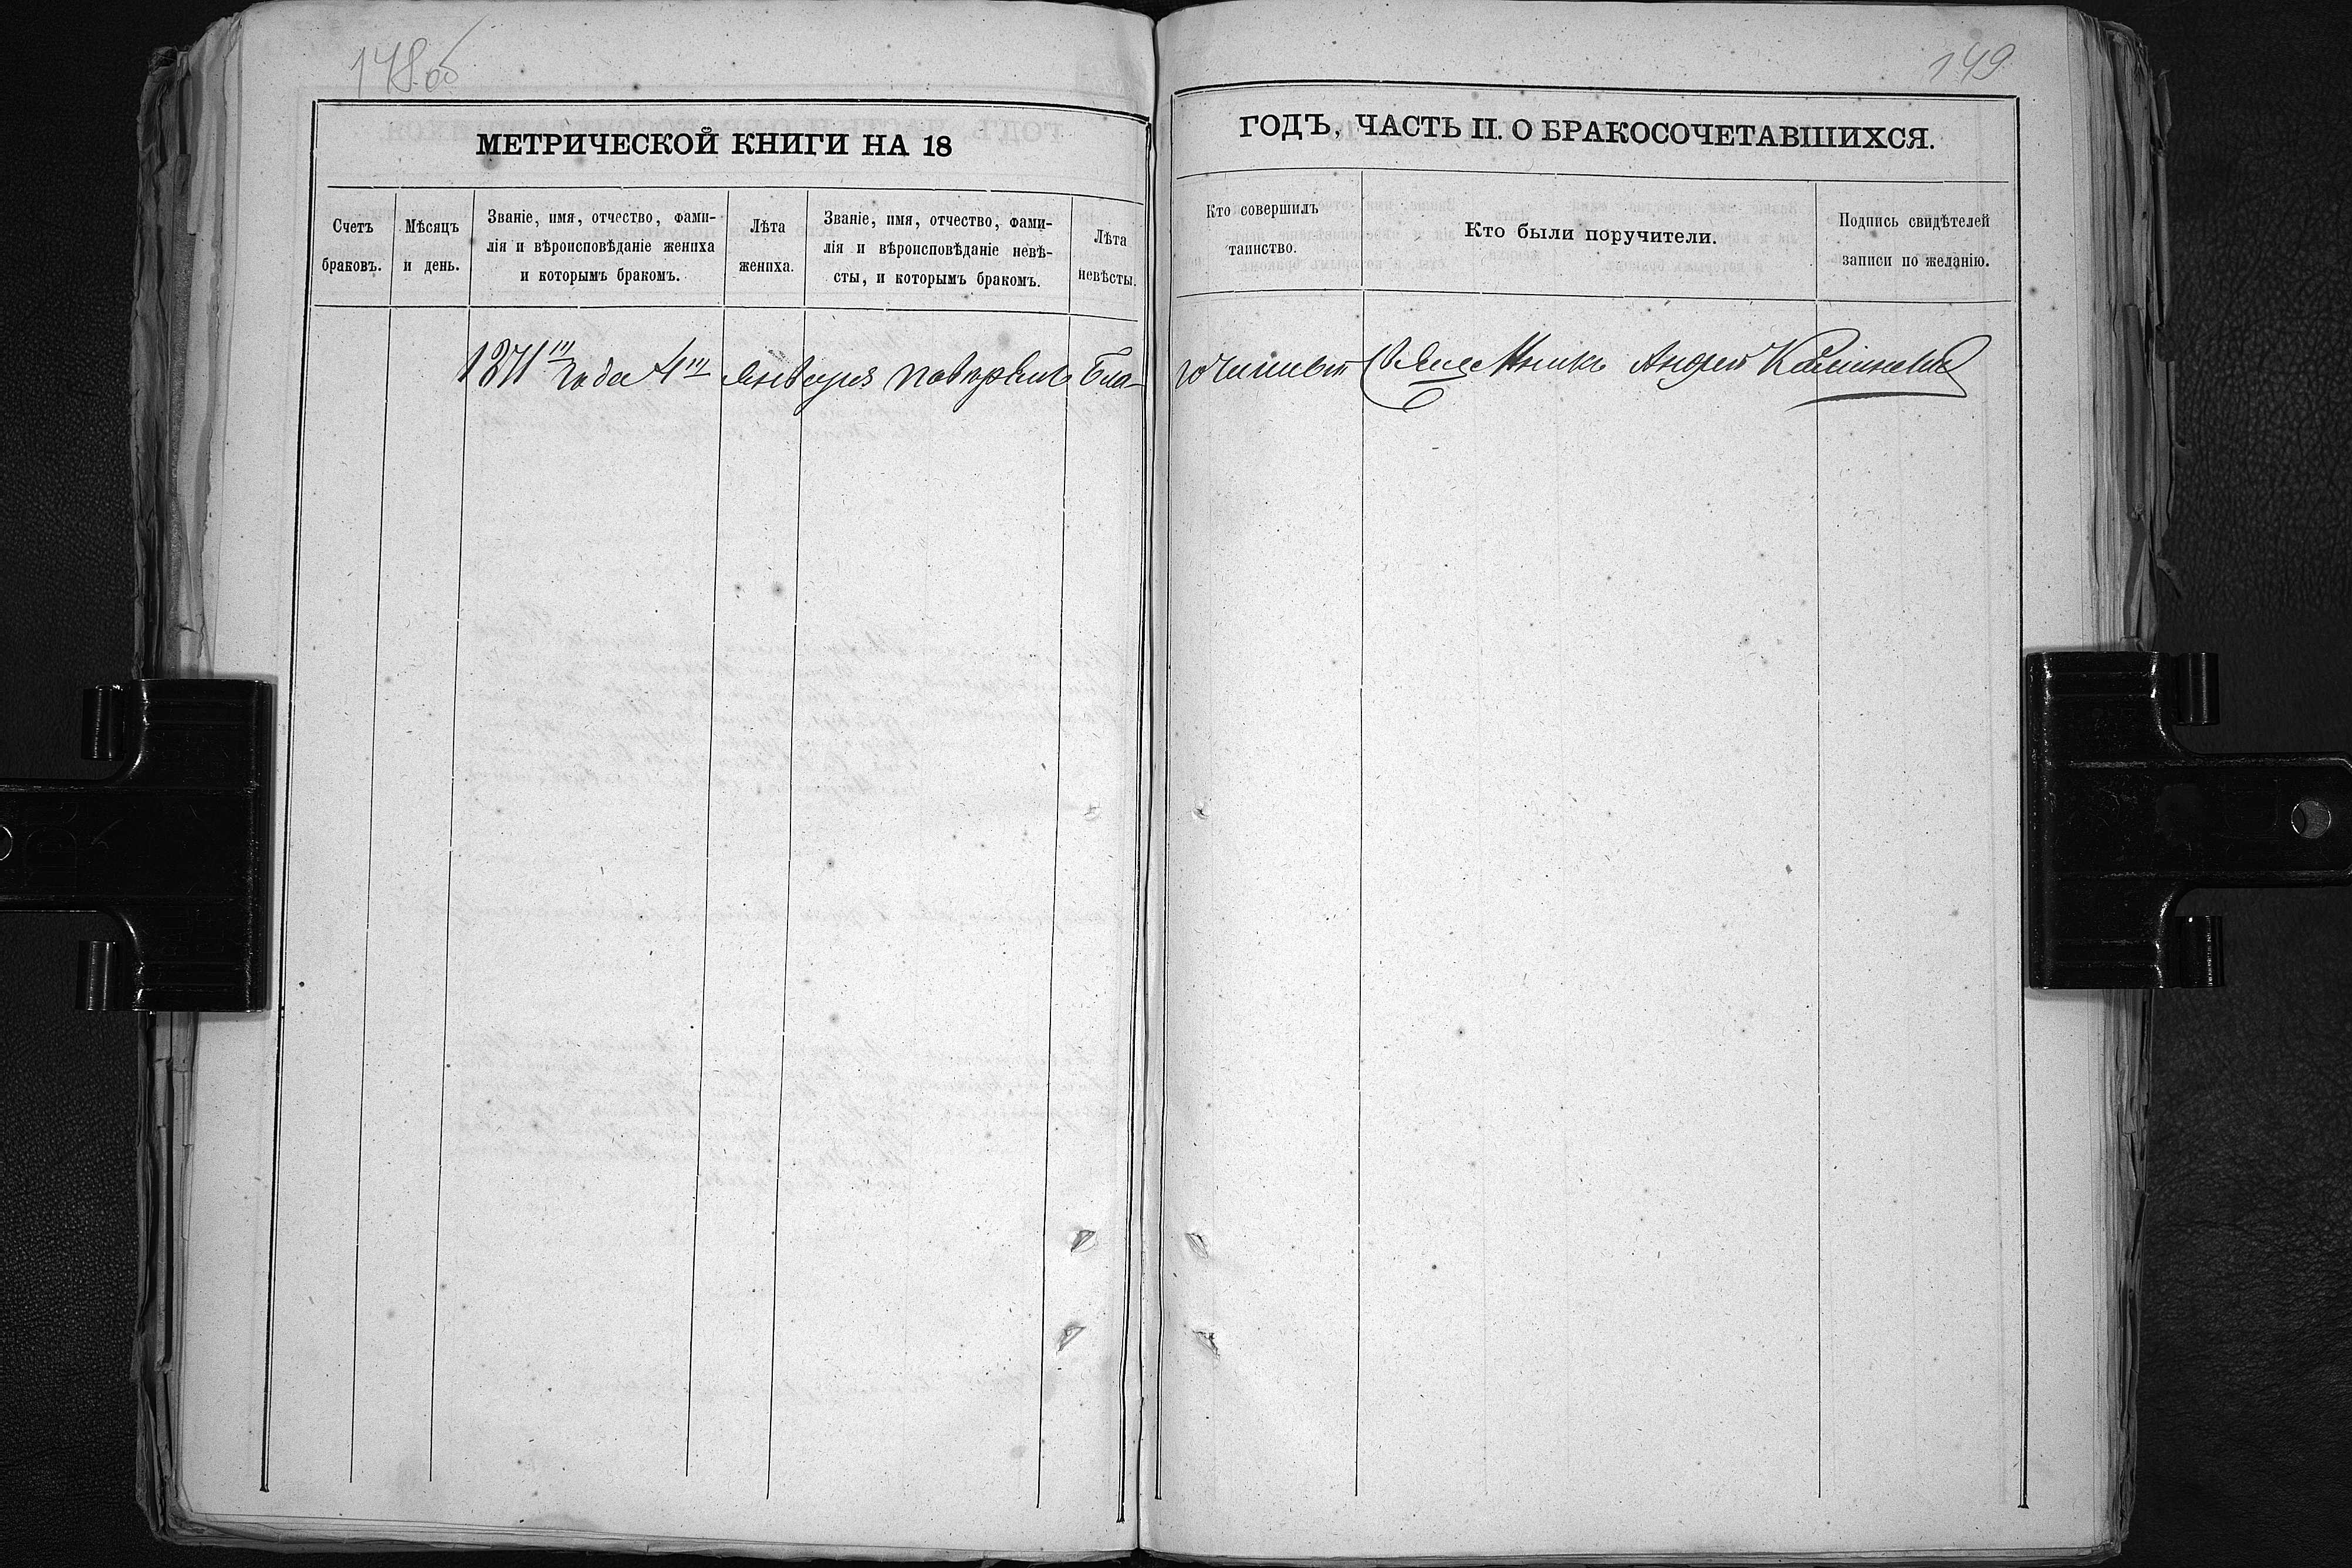 148об
149
МЕТРИЧЕСКОЙ КНИГИ НА 18
ГОДЪ, ЧАСТЬ II. О БРАКОСОЧЕТАВШИХСЯ.
Счетъ браковъ.
Мѣсяцъ и день.
Званіе, имя, отчество, фами-
лія и вѣроисповѣданіе жениха
и которымъ бракомъ.
Лѣта жениха.
Званіе, имя, отчество, фами-
лія и вѣроисповѣданіе невѣ-
сты, и которымъ бракомъ.
Лѣта невѣсты.
Кто совершилъ таинство.
Кто были поручители.
Подпись свидѣтелей
записи по желанію.
1871го года 4го Января повѣрялъ Бла-
гочинный Священникъ Андрей